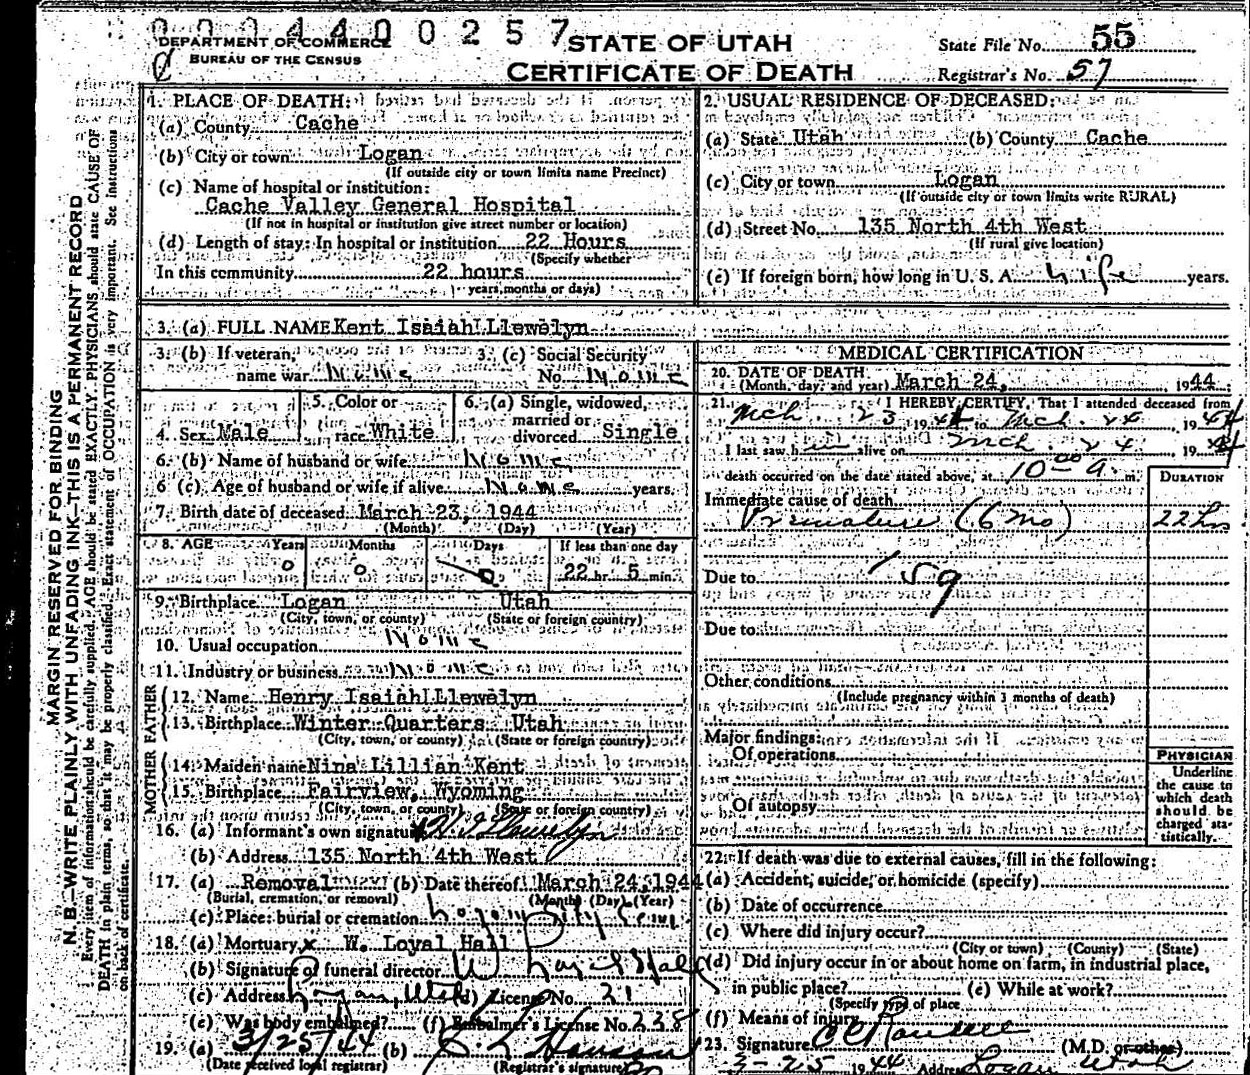 0 0 0 4 4 0 0 2 5 7
DEPARTMENT OF COMMERCE
BUREAU OF THE CENSUS
STATE OF UTAH
CERTIFICATE OF DEATH
State File No. 55
Registrar's No. 57
MARGIN RESERVED FOR BINDING
N. B.—WRITE PLAINLY WITH UNFADING INK—THIS IS A PERMANENT RECORD
Every item of information should be carefully supplied. AGE should be stated EXACTLY. PHYSICIANS should state CAUSE OF
DEATH in plain terms, so that it may be properly classified. Exact statement of OCCUPATION is very important. See instructions
on back of certificate.
1. PLACE OF DEATH:
(a) County Cache
(b) City or town Logan
(If outside city or town limits name Precinct)
(c) Name of hospital or institution:
Cache Valley General Hospital
(If not in hospital or institution give street number or location)
(d) Length of stay: In hospital or institution 22 Hours
(Specify whether
In this community 22 hours
years, months or days)
2. USUAL RESIDENCE OF DECEASED:
(a) State Utah (b) County Cache
(c) City or town Logan
(If outside city or town limits write RURAL)
(d) Street No. 135 North 4th West
(If rural give location)
(e) If foreign born, how long in U. S. A. Life years.
3. (a) FULL NAME Kent Isaiah Llewelyn
3. (b) If veteran, name war None
3. (c) Social Security No. None
4. Sex Male
5. Color or race White
6. (a) Single, widowed, married or divorced Single
6. (b) Name of husband or wife None
6 (c). Age of husband or wife if alive None years.
7. Birth date of deceased March 23, 1944
(Month) (Day) (Year)
8. AGE Years 0 Months 0 Days 0 If less than one day 22 hr. 5 min.
9. Birthplace Logan Utah
(City, town, or county) (State or foreign country)
10. Usual occupation None
11. Industry or business None
FATHER
12. Name Henry Isaiah Llewelyn
13. Birthplace Winter Quarters Utah
(City, town, or county) (State or foreign country)
MOTHER
14. Maiden name Nina Lillian Kent
15. Birthplace Fairview, Wyoming
(City, town, or county) (State or foreign country)
16. (a) Informant's own signature H. I. Llewelyn
(b) Address 135 North 4th West
17. (a) Removal (b) Date thereof March 24, 1944
(Burial, cremation, or removal) (Month) (Day) (Year)
(c) Place: burial or cremation Logan City Cem.
18. (a) Mortuary x W. Loyal Hall
(b) Signature of funeral director W Loyal Hall
(c) Address Logan, Utah (d) License No. 21
(e) Was body embalmed? (f) Embalmer's License No. 238
19. (a) 3/25/44 (b)
(Date received local registrar) (Registrar's signature)
MEDICAL CERTIFICATION
20. DATE OF DEATH
(Month, day, and year) March 24, 1944
21. I HEREBY CERTIFY, That I attended deceased from
Mch. 23 1944 to Mch. 24 1944
I last saw h alive on Mch. 24 1944
death occurred on the date stated above, at 10 00 a. m.
DURATION
Immediate cause of death
Premature (6 mo) 22 hrs
Due to 159
Due to
Other conditions
(Include pregnancy within 3 months of death)
Major findings:
Of operations
Of autopsy
PHYSICIAN
Underline the cause to which death should be charged statistically.
22. If death was due to external causes, fill in the following:
(a) Accident, suicide, or homicide (specify)
(b) Date of occurrence
(c) Where did injury occur?
(City or town) (County) (State)
(d) Did injury occur in or about home on farm, in industrial place,
in public place? (e) While at work?
(Specify type of place
(f) Means of injury
23. Signature (M.D. or other)
3-25 1944 Address Logan Utah